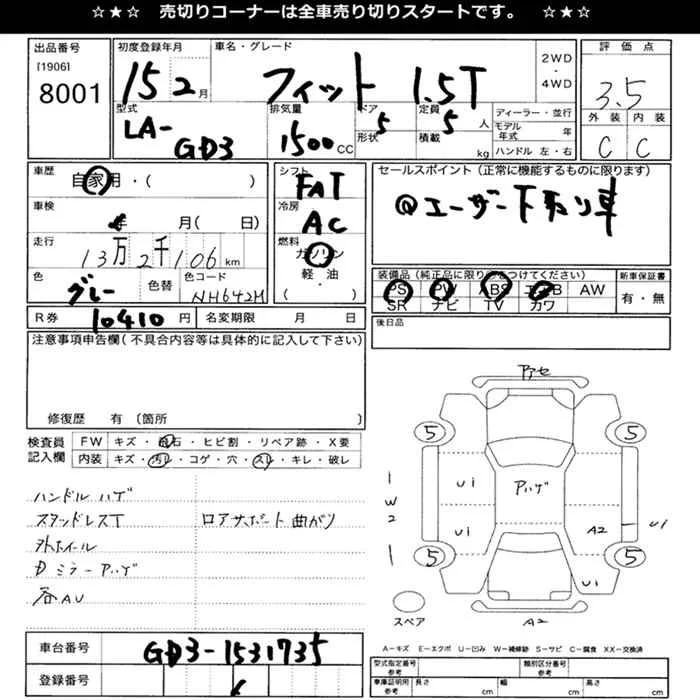 ☆★☆ 売切りコーナーは全車売り切りスタートです。 ☆★☆
出品番号 初度登録年月 車名・グレード 2WD・4WD 評価点
[1906]
8001 15 2月 フィット 1.5T 3.5
型式 排気量 ドア 定員 ディーラー・並行 外装 内装
LA-GD3 1500cc 形状 5 5人 積載 kg モデル年式 年 ハンドル 左・右 C C
車歴 自家用・( ) シフト FAT セールスポイント (正常に機能するものに限ります)
車検 年 月( 日) 冷房 AC @ユーザー下取り車
走行 13万2千106km 燃料 ガソリン・軽・油・( )
色 グレー 色替 色コード NH642M
装備品 (純正品に限り○をつけてください) 新車保証書
PS PW ABS エアB AW 有・無
SR ナビ TV カワ
R券 10410円 名変期限 月 日 後日品
注意事項申告欄(不具合内容等は具体的に記入して下さい)
修復歴 有 〔箇所
検査員記入欄 FW キズ・飛石・ヒビ割・リペア跡・X要
内装 キズ・汚レ・コゲ・穴・スレ・キレ・破レ
ハンドルハゲ
スタッドレスT ロアサポート曲がり
外ホイール
Dミラーアハゲ
各AU
アセ
5 5
U1 アハゲ
1
W2 U1 A2 U1
1 5 5
U1
スペア A2
A-キズ E-エクボ U-凹み W-補修跡 S-サビ C-腐食 XX-交換済
車台番号 GD3-1531735
登録番号
型式指定番号 参考 類別区分番号 参考
車庫証明用 参考 長さ cm 幅 cm 高さ cm